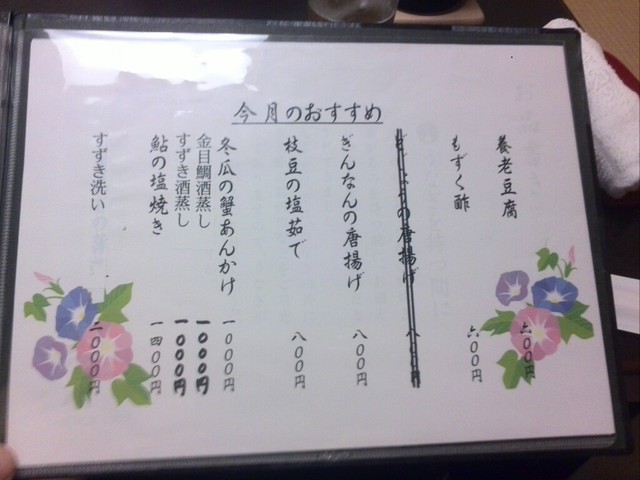 今月のおすすめ
養老豆腐 六〇〇円
もずく酢 六〇〇円
の唐揚げ 八
ぎんなんの唐揚げ 八〇〇円
枝豆の塩茹で 八〇〇円
冬瓜の蟹あんかけ 一〇〇〇円
金目鯛酒蒸し 一〇〇〇円
すずき酒蒸し 一〇〇〇円
鮎の塩焼き 一四〇〇円
すずき洗い 二〇〇〇円